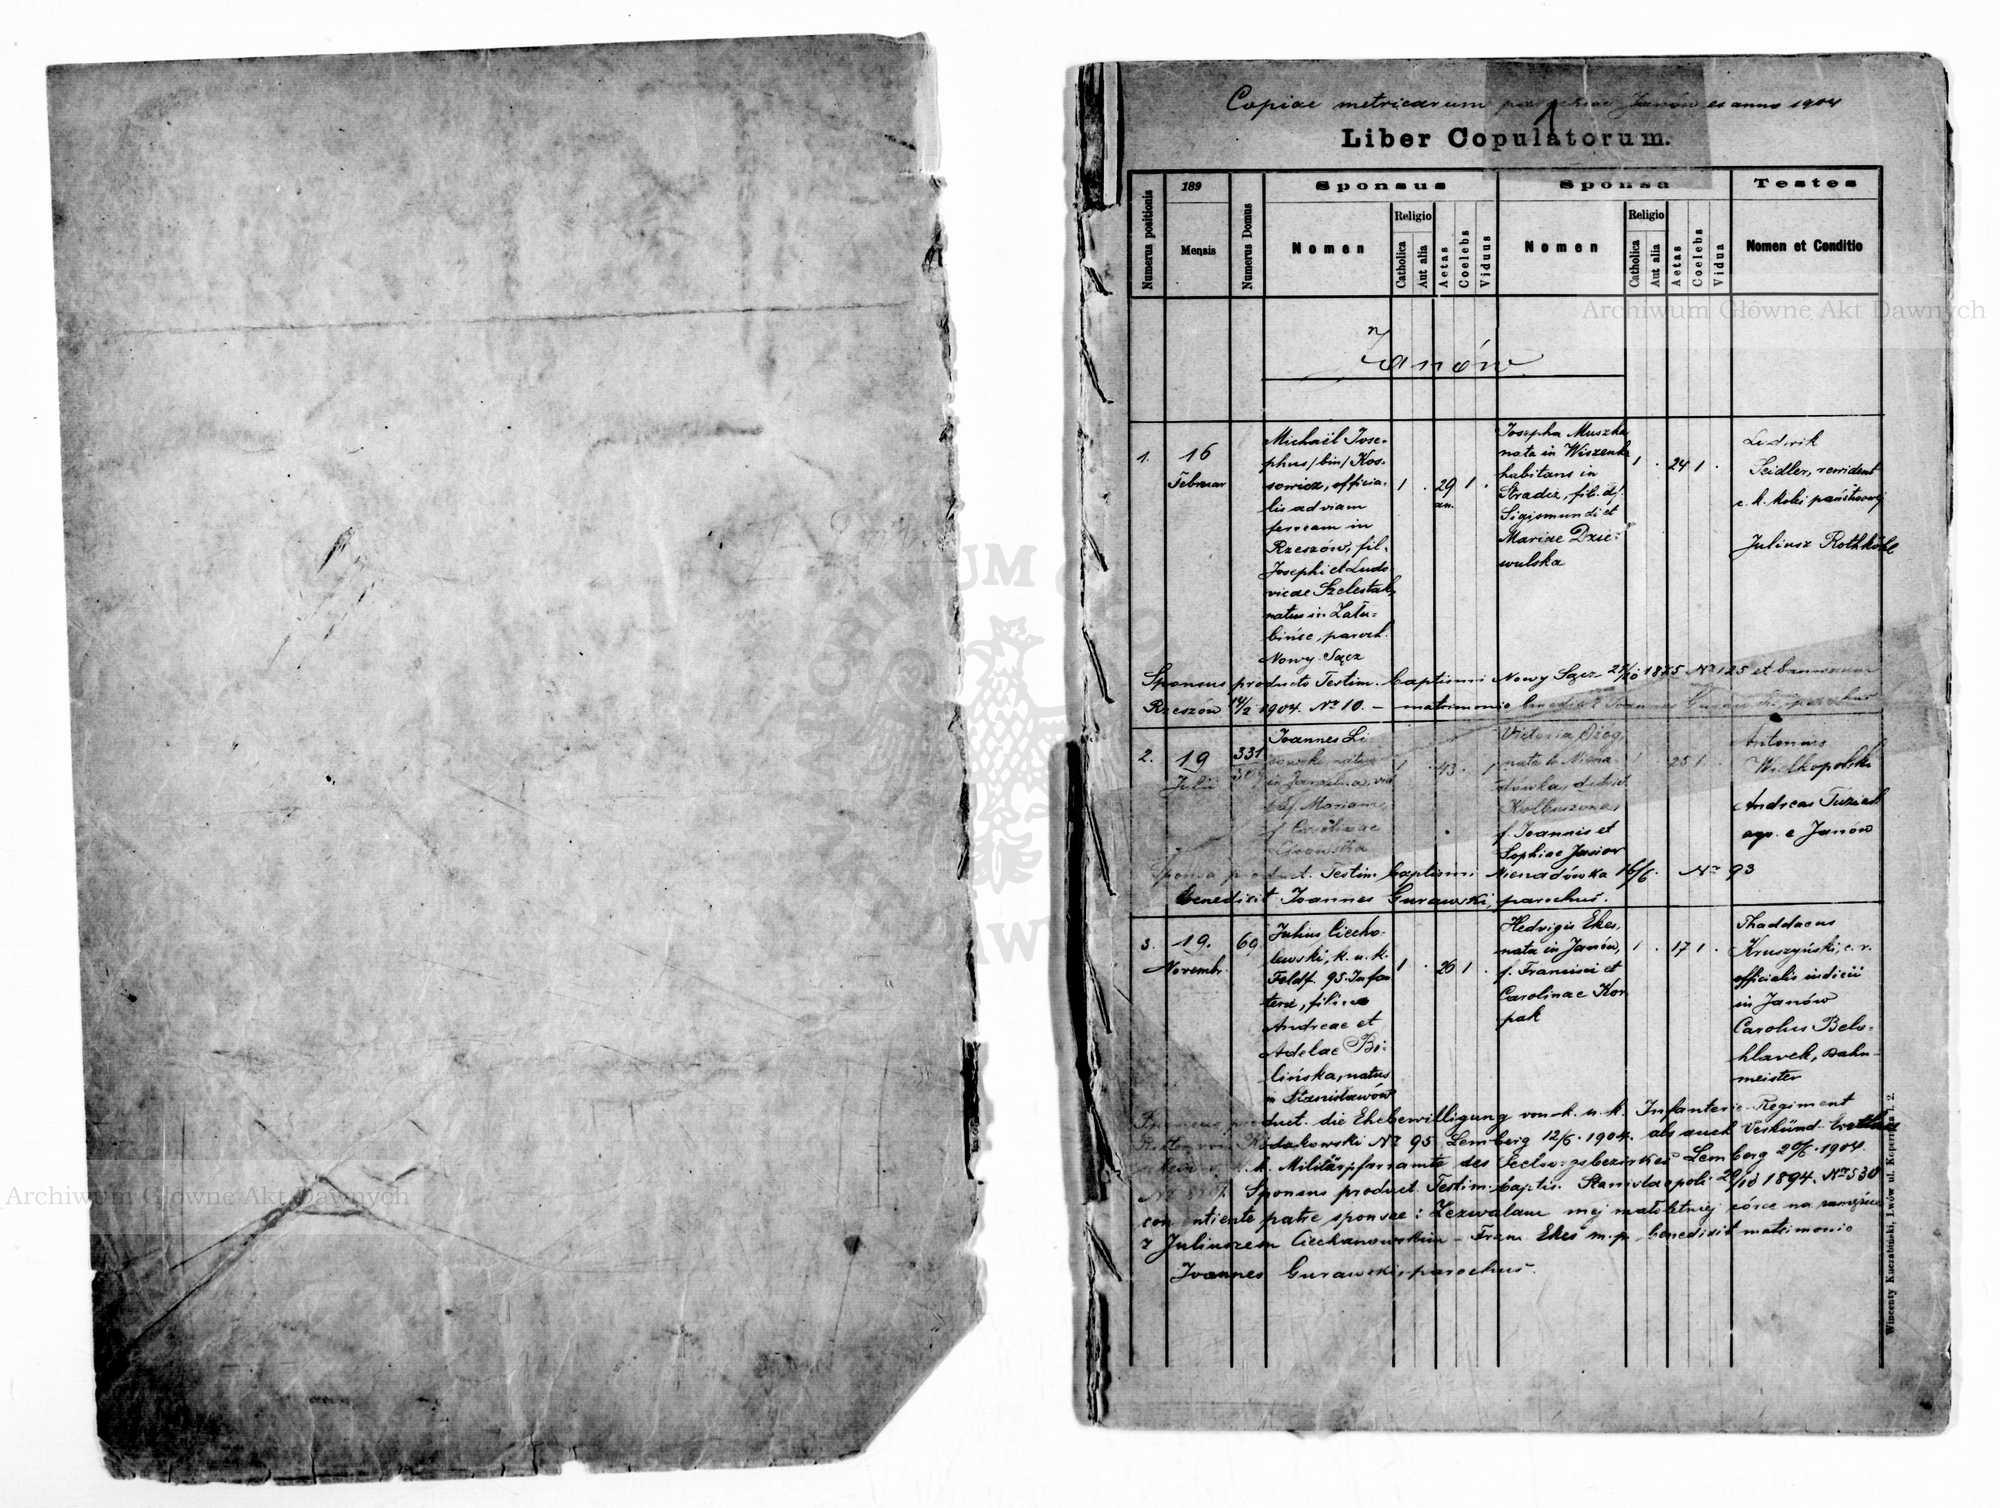 Copiae metricarum parochiae Janów ex anno 1904
1
Liber Copulatorum.
Numerus positionis
189
Mensis
Numerus Domus
Sponsus
Nomen
Religio
Catholica
Aut alia
Aetas
Coelebs
Viduus
Sponsa
Nomen
Religio
Catholica
Aut alia
Aetas
Coelebs
Vidua
Testes
Nomen et Conditio
Janów
1.
16
Februar
Michaël Jose-
phus /bin/ Kos-
sowicz, officia-
lis ad viam
ferream in
Rzeszów, fil.
Josephi et Ludo
vicae Szelestak,
natus in Zału-
bińcze, paroch.
Nowy Sącz
1 . 29 1 .
an.
Josepha Muszka
nata in Wiszenka
habitans in
Stradcz, fil. d/
Sigismundi et
Mariae Dzie-
wulska
1 . 24 1 .
Ludwik
Seidler, revident
c. k. kolei państwowej
Juliusz Rothköhl
Sponsus producto Testim. baptismi Nowy Sącz 1875 Nr 125 et bannorum
Rzeszów 14/2 1904. Nr 10. - matrimonio benedixit Joannes Gurawski, parochus
2.
19
Julii
331
Joannes Li
sowski, natus
f. Carolinae
1 . 43 . 1
Victoria Ożóg,
nata in Niena-
dówka, district
Kolbuszowa,
f. Joannis et
Sophiae Jasior
1 . 25 1 .
Antonius
Wielkopolski
Andreas Tuziak
agr. e Janów
Sponsa product. Testim. baptismi Nienadówka 16/6. Nr 93
benedixit Joannes Gurawski, parochus.
3.
19.
Novembr.
60
Julius Ciecho-
lewski, k. u. k.
Feldf. 95. Infan
terie, filius
Andreae et
Adelae Bi-
lińska, natus
in Stanisławów
1 . 26 1 .
Hedvigis Ekes,
nata in Janów,
f. Francisci et
Carolinae Kor
pak
1 . 17 1 .
Thaddaeus
Kruszyński, c. r.
officialis iudicii
in Janów
Carolus Belo-
hlavek, Bahn-
meister
Sponsus product. die Ehebewilligung von k. u. k. Infanterie-Regiment
Ritter von Rodakowski Nr 95 Lemberg 12/6. 1904. als auch Verkünd-
k. k. Militärpfarramte des Seelsorgebezirkes Lemberg 1904.
Sponsus product. Testim. baptis. Stanislaopoli 1894. Nr 530
consentiente patre sponsae: Zezwalam mej małoletniej córce na zamęście
z Juliuszem Ciechanowskim - Franc. Ekes m.p., benedixit matrimonio
Joannes Gurawski, parochus.
Wincenty Kuczabiński, Lwów ul. Kopernika l. 2.
Archiwum Główne Akt Dawnych
Archiwum Główne Akt Dawnych